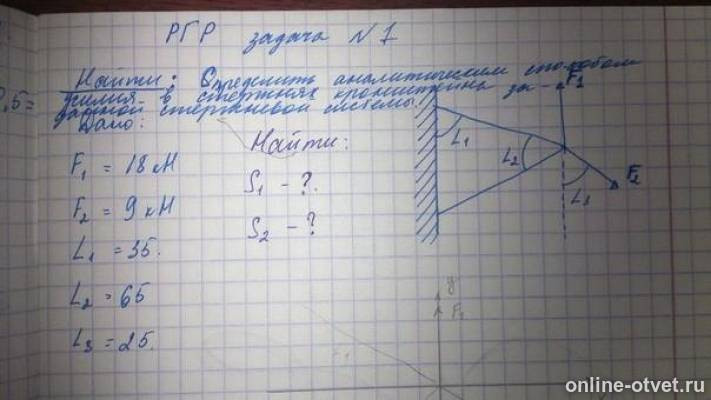 РГР задача №1
Найти: Определить аналитическим способом
усилия в стержнях кронштейна за-
данной стержневой системы.
Дано:
Найти:
F1 = 18 кН
S1 - ?
F2 = 9 кН
S2 - ?
L1 = 35.
L2 = 65
L3 = 25.
F1
L1
L2
F2
L3
y
F1
online-otvet.ru